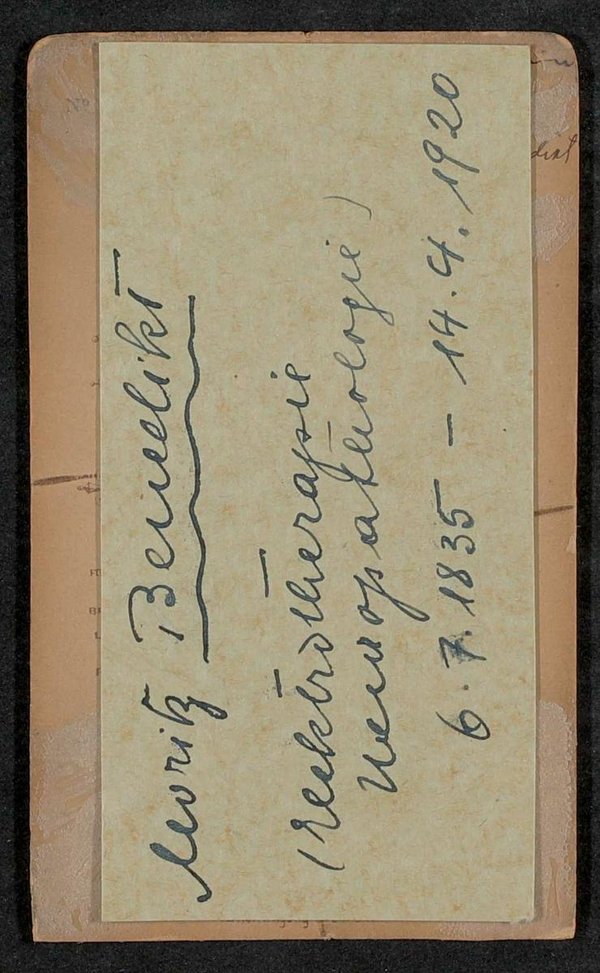 Moritz Benedikt
(Elektrotherapie
Neuropathologie)
6.7.1835 – 14.4.1920